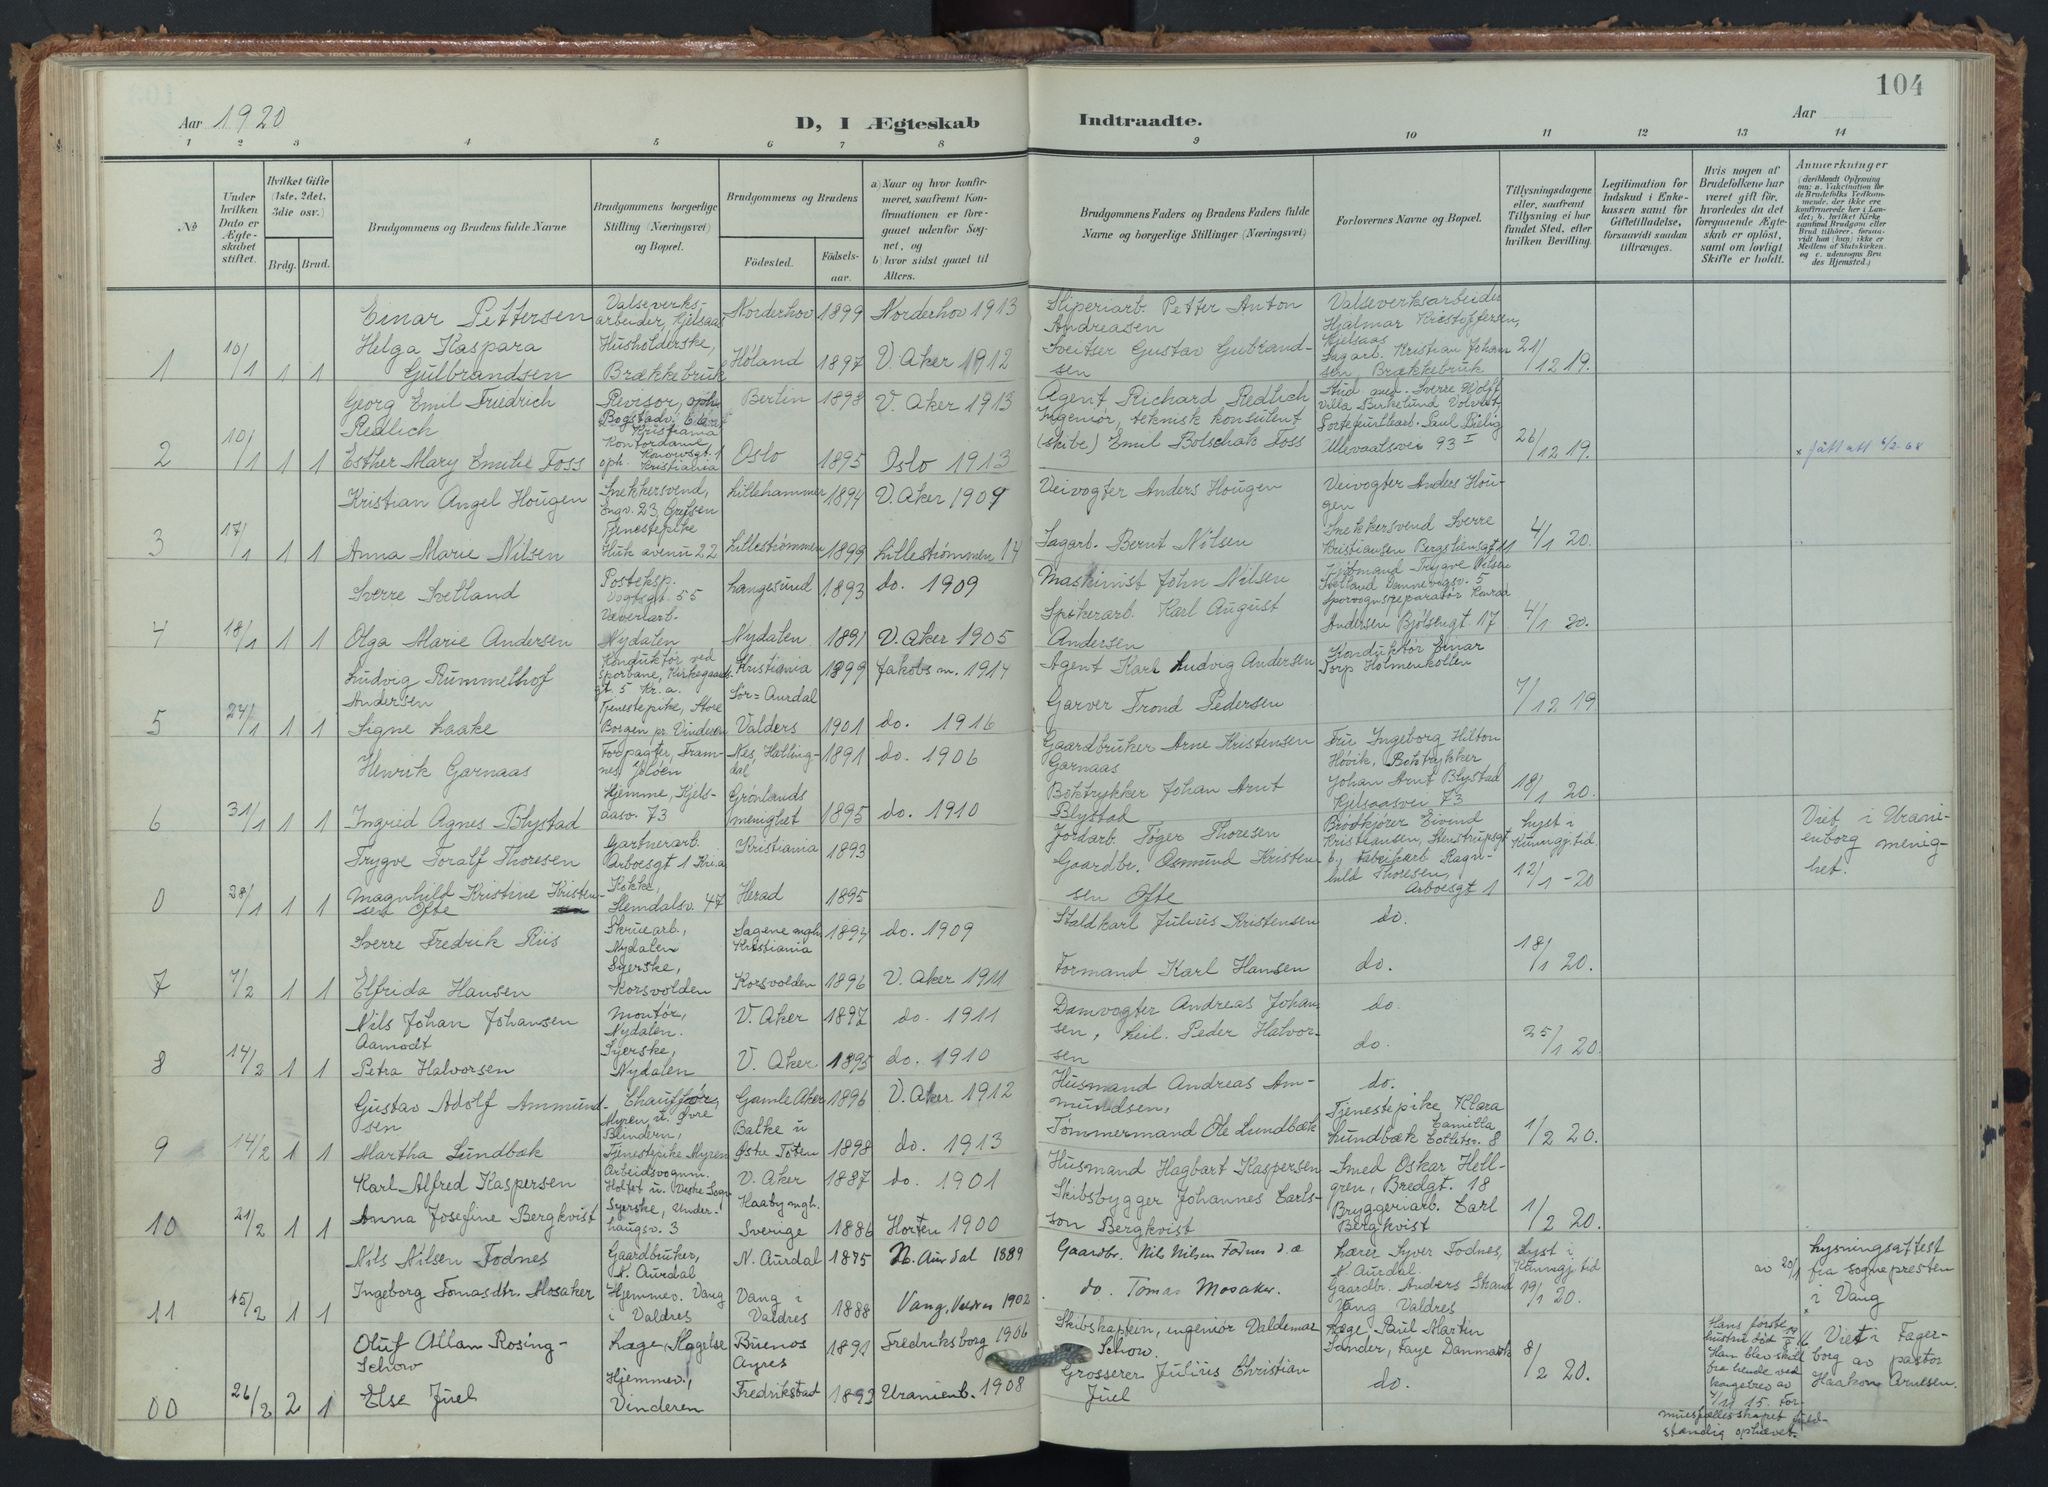 104
Aar 1920
D, I Ægteskab Indtraadte.
Aar
1 2 3 4 5 6 7 8 9 10 11 12 13 14
№
Under hvilken Dato er Ægteskabet stiftet.
Hvilket Gifte (1ste, 2det, 3die osv.)
Brdg. Brud.
Brudgommens og Brudens fulde Navne
Brudgommens borgerlige Stilling (Næringsvei) og Bopæl.
Brudgommens og Brudens
Födested. Födselsaar.
a) Naar og hvor konfirmeret, saafremt Konfirmationen er foregaaet udenfor Sognet, og
b) hvor sidst gaaet til Alters.
Brudgommens Faders og Brudens Faders fulde Navne og borgerlige Stillinger (Næringsvei)
Forlovernes Navne og Bopæl.
Tillysningsdagene eller, saafremt Tillysning ei har fundet Sted, efter hvilken Bevilling.
Legitimation for Indskud i Enkekassen samt for Giftetilladelse, forsaavidt saadan tiltrænges.
Hvis nogen af Brudefolkene har været gift för, hvorledes da det foregaaende Ægteskab er oplöst, samt om lovligt Skifte er holdt.
Anmærkninger
(deriblandt Oplysning om: a. Vakcination for de Brudefolks Vedkommende, der ikke ere konfirmerede her i Landet; b. hvilket Kirkesamfund Brudgom eller Brud tilhörer, forsaavidt han (hun) ikke er Medlem af Statskirken, og c. udensogns Brudes Hjemsted.)
Einar Pettersen Valseverksarbeider, Kjelsaas Norderhov 1899 Norderhov 1913 Sliperiarb. Petter Anton Andreasen Valseverksarbeider Hjalmar Kristoffersen, Kjelsaas
1 10/1 1 1 Helga Kaspara Gulbrandsen Husholderske, Brækkebruk Høland 1897 V. Aker 1912 Sveitser Gustav Gubrandsen Sagarb. Kristian Johansen, Brækkebruk 21/12 19.
Georg Emil Friedrich Redlich Revisor, oph. Bogstadv. Kristiania Berlin 1898 V. Aker 1913 Agent Richard Redlich Stud. med. Sverre Wolff villa Birkelund
2 10/1 1 1 Esther Mary Emilie Foss Kontordame, oph. Konowsgt. 1 Kristiania Oslo 1895 Oslo 1913 Ingeniør, teknisk konsulent (skibe) Emil Bolschak Foss Portefeuillearb. Paul Bielig Ullevaalsvei 93 I 26/12 19. x fått att 6/2-68
Kristian Angel Hougen Snekkersvend, Engv. 23, Grefsen Lillehammer 1894 V. Aker 1909 Veivogter Anders Hougen Veivogter Anders Hougen
3 17/1 1 1 Anna Marie Nilsen Tjenestepike Huk aveni 22 Lillestrømmen 1899 Lillestrømmen 14 Sagarb. Bernt Nilsen Snekkersvend Sverre Kristiansen Bergslhensgt 11 4/1 20.
Sverre Svelland Posteksp. Vogtsgt. 55 Langesund 1893 do. 1909 Maskinist John Nilsen Kjøbmand Trygve Nilsen Svelland Dannevigsv. 5
4 18/1 1 1 Olga Marie Andersen Væveriarb. Nydalen Nydalen 1891 V. Aker 1905 Spikerarb. Karl August Andersen Sporvognsreparatør Konrad Andersen Bjølsengt. 17 4/1 20.
Ludvig Rummelhof Andersen Konduktør ved sporbane, Kirkegaardsgt. 5 Kr.a. Kristiania 1899 Jakobs m. 1914 Agent Karl Ludvig Andersen Konduktør Einar Torp Holmenkollen
5 24/1 1 1 Signe Laake Tjenestepike, Store Borgen pr. Vinderen Sør-Aurdal Valders 1901 do. 1916 Garver Trond Pedersen 7/12 19
Henrik Garnaas Forpagter, Framnes, Jeløen Nes, Hallingdal 1891 do. 1906 Gaardbruker Arne Kristensen Garnaas Fru Ingeborg Hilton Høvik, Boktrykker
6 31/1 1 1 Ingrid Agnes Blystad Hjemme, Kjelsaasv. 73 Grønlands menighet 1895 do. 1910 Boktrykker Johan Arnt Blystad Johan Arnt Blystad Kjelsaasvei 73 18/1 20.
Trygve Toralf Thoresen Gartnerarb. Arboesgt 1 Kr.ia Kristiania 1893 Jordarb. Tøger Thoresen Brødkjører Eivind Kristiansen, Stenstrupsgt 6, Lyst i Kunngj. tid Viet i Uranienborg menighet.
0 28/1 1 1 Magnhild Kristine Kristensen Ofte Kokke, Slemdalsv. 47 Herad 1895 Gaardbr. Osmund Kristensen Ofte Fabrikarb. Ragnhild Thoresen, Arboesgt 1 12/1-20
Sverre Fredrik Riis Skruearb., Nydalen Sagene mgh. Kristiania 1894 do. 1909 Staldkarl Julius Kristensen do.
7 7/2 1 1 Elfrida Hansen Syerske, Korsvolden Korsvolden 1896 V. Aker 1911 Formand Karl Hansen do. 18/1 20.
Nils Johan Johansen Aamodt Montør, Nydalen. V. Aker 1897 do. 1911 Damvogter Andreas Johansen, do.
8 14/2 1 1 Petra Halvorsen Syerske, Nydalen V. Aker 1895 do. 1910 Peder Halvorsen do. 25/1 20.
Gustav Adolf Ammundsen Chauffør, Myren u. Øvre Blindern, Gamle Aker 1896 V. Aker 1912 Husmand Andreas Ammundsen, do.
9 14/2 1 1 Martha Lundbæk Tjenestepike Myren Balke u Østre Toten 1898 do. 1913 Tømmermand Ole Lundbæk Tjenestepike Klara Camilla Lundbæk Colletsv. 8 1/2 20.
Karl Alfred Kaspersen Arbeidsvognm. Holtet u. Vestre Sogn V. Aker 1887 do. 1901 Husmand Hagbart Kaspersen Smed Oskar Hellgren, Bredgt. 18
10 21/2 1 1 Anna Josefine Bergkvist Syerske, Underhaugsv. 3 Haaby mgh. Sverige 1886 Horten 1900 Skibsbygger Johannes Carlsson Bergkvist Bryggeriarb. Carl Bergkvist 1/2 20.
Nils Nilsen Fodnes Gaardbruker, N. Aurdal N. Aurdal 1875 N. Aurdal 1889 Gaardbr. Nils Nilsen Fodnes d.æ Lærer Syver Fodnes, N. Aurdal. Lyst i Kunngj. tid av 20/1 Lysningsattest fra sognepresten i Vang
11 15/2 1 1 Ingeborg Tomasdtr. Mosaker Hjemmev. Vang i Valdres Vang i Valdres 1888 Vang, Valdres 1902 do. Tomas Mosaker. Gaardbr. Anders Strand Vang Valdres 19/1 20.
Oluf Allan Rosing-Schow Læge, Slagelse Buenos Ayres 1891 Fredriksborg 1906 Skibskaptein, ingeniør Valdemar Schow. Læge Paul Martin Sander, Faxe Danmark Hans første hustru død Han blev skilt fra hende ved kongebrev av 4/11 15. Formuesfællesskapet fuldstændig ophævet. x Viet i Fagerborg av pastor Haakon Arnesen.
00 26/2 2 1 Else Juel Hjemmev., Vinderen Fredrikstad 1893 Uranienb. 1908 Grosserer Julius Christian Juel do. 8/2 20.